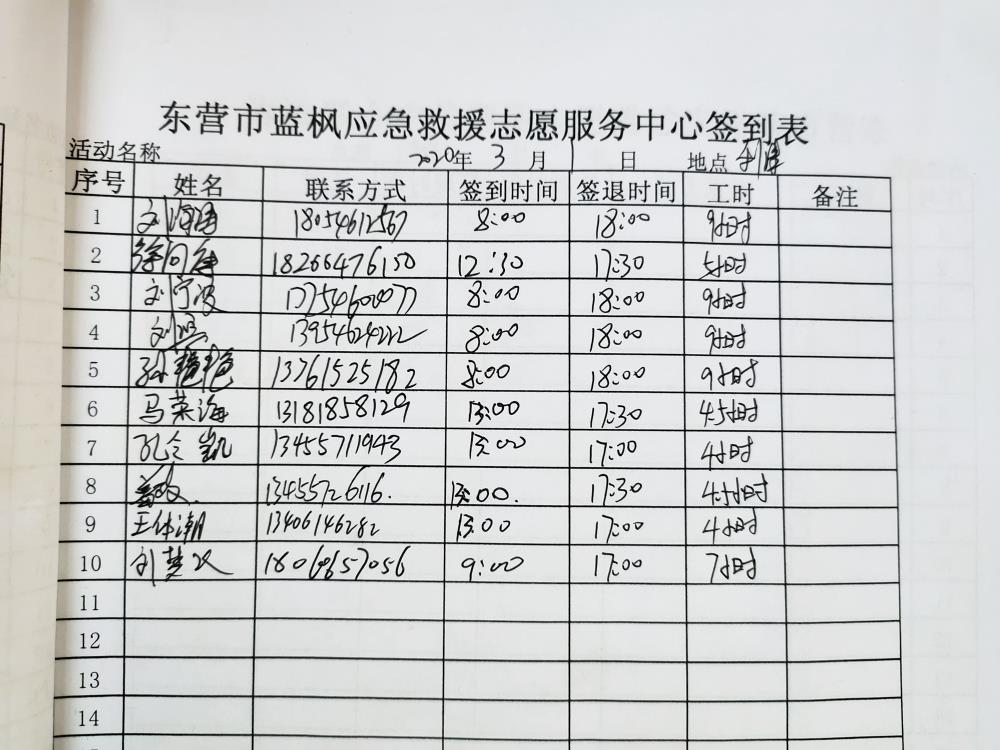 东营市蓝枫应急救援志愿服务中心签到表
活动名称 2020年 3 月 1 日 地点
序号 姓名 联系方式 签到时间 签退时间 工时 备注
1 刘海 18054612567 8:00 18:00 9小时
2 徐向 18266476150 12:30 17:30 5小时
3 刘宁波 17754600077 8:00 18:00 9小时
4 刘 13954624222 8:00 18:00 9小时
5 孙艳艳 13761525182 8:00 18:00 9小时
6 马荣海 13181858129 13:00 17:30 4.5小时
7 孔令凯 13455711943 13:00 17:00 4小时
8 13455726116. 13:00. 17:30 4.5小时
9 王体潮 13406146282 13:00 17:00 4小时
10 刘梦 9:00 17:00 7小时
11
12
13
14